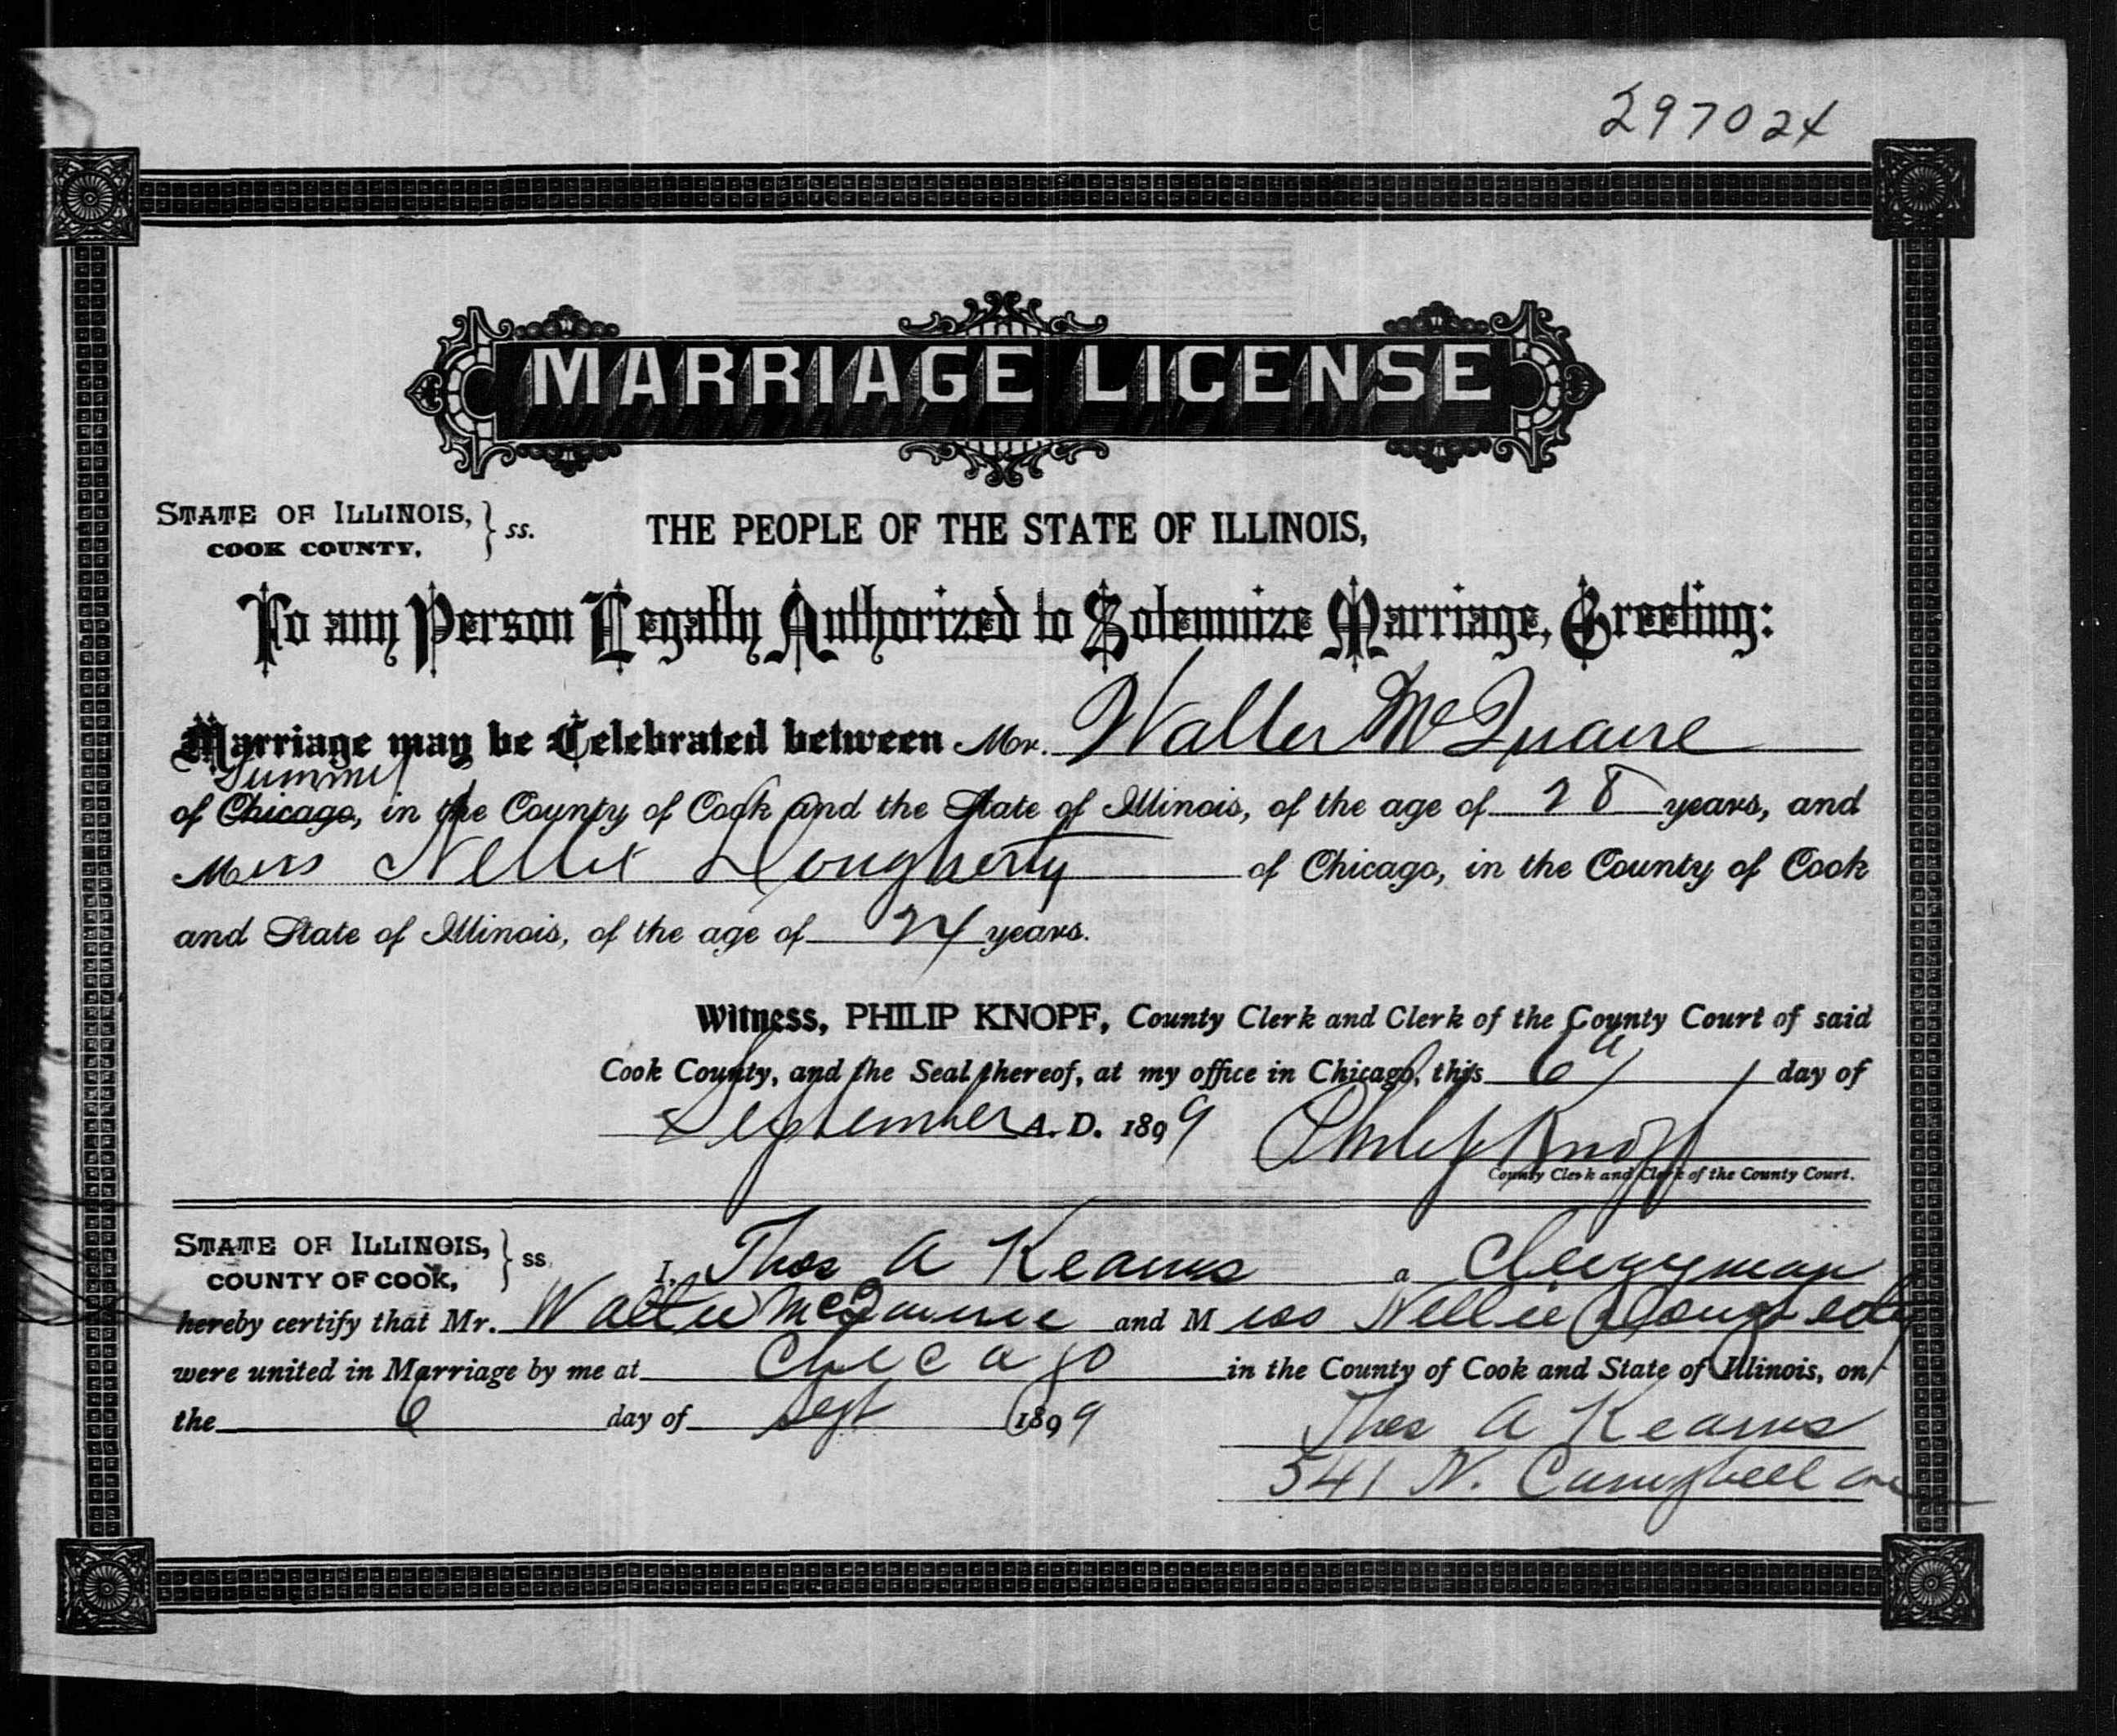 297024
MARRIAGE LICENSE
STATE OF ILLINOIS, } ss.
COOK COUNTY,
THE PEOPLE OF THE STATE OF ILLINOIS,
To any Person Legally Authorized to Solemnize Marriage, Greeting:
Marriage may be Celebrated between Mr. Walter McQuane
Summit
of Chicago, in the County of Cook and the State of Illinois, of the age of 28 years, and
Miss Nellie Dougherty of Chicago, in the County of Cook
and State of Illinois, of the age of 24 years.
Witness, PHILIP KNOPF, County Clerk and Clerk of the County Court of said
Cook County, and the Seal thereof, at my office in Chicago, this 6th day of
September A. D. 1899 Philip Knopf
County Clerk and Clerk of the County Court.
STATE OF ILLINOIS, } ss.
COUNTY OF COOK,
I, Thos A Kearns a Clergyman
hereby certify that Mr. Walter and Miss Nellie Dougherty
were united in Marriage by me at Chicago in the County of Cook and State of Illinois, on
the 6 day of Sept 1899
Thos A Kearns
541 N. Campbell ave